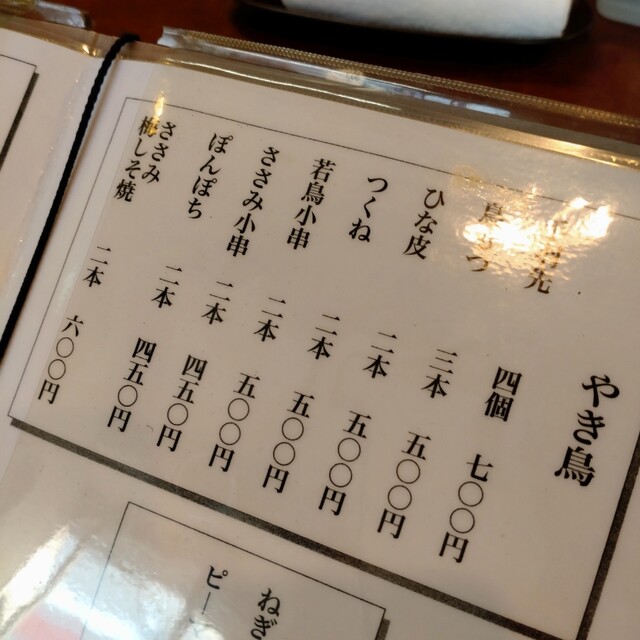 やき鳥
元 四個 七〇〇円
つ 三本 五〇〇円
ひな皮 二本 五〇〇円
つくね 二本 五〇〇円
若鳥小串 二本 五〇〇円
ささみ小串 二本 四五〇円
ぽんぽち 二本 四五〇円
ささみ
梅しそ焼 二本 六〇〇円
ねぎ
ピー